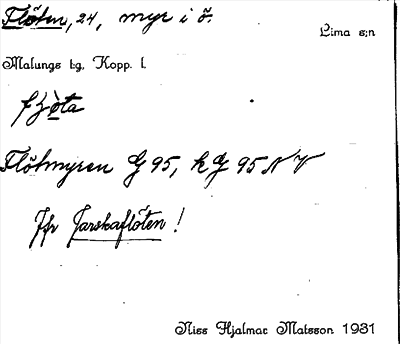 Flöten, 24, myr i ö.
Lima s:n
Malungs tg, Kopp. l.
Flötmyren G 95, k G 95 N V
Jfr Jarskaflöten!
Niss Hjalmar Matsson 1931